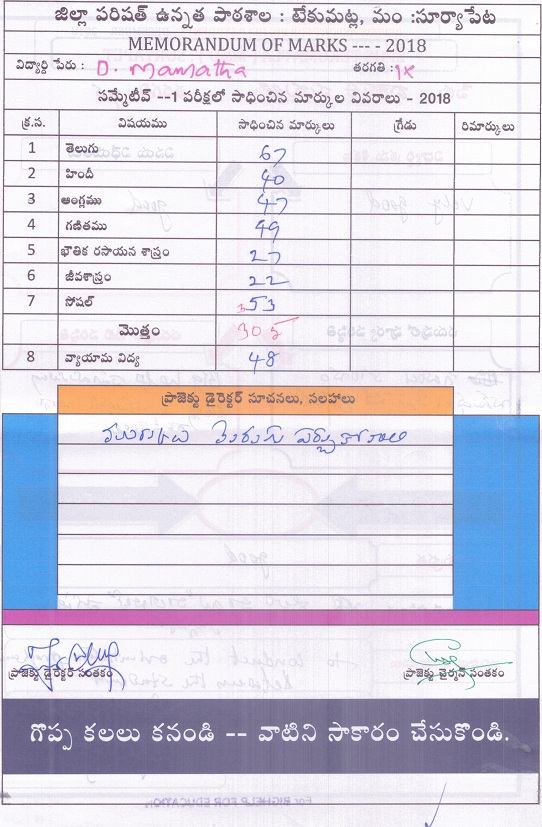 జిల్లా పరిషత్ ఉన్నత పాఠశాల : టేకుమట్ల, మం :సూర్యాపేట
MEMORANDUM OF MARKS --- - 2018
విద్యార్థి పేరు : D. Mamatha తరగతి : IX
సమ్మేటీవ్ --1 పరీక్షలో సాధించిన మార్కుల వివరాలు - 2018
క్ర.స. విషయము సాధించిన మార్కులు గ్రేడు రిమార్కులు
1 తెలుగు 67
2 హిందీ 40
3 ఆంగ్లము 47
4 గణితము 49
5 భౌతిక రసాయన శాస్త్రం 27
6 జీవశాస్త్రం 22
7 సోషల్ 53
మొత్తం 305
8 వ్యాయామ విద్య 48
ప్రాజెక్టు డైరెక్టర్ సూచనలు, సలహాలు
ప్రాజెక్టు డైరెక్టర్ సంతకం ప్రాజెక్టు చైర్మన్ సంతకం
గొప్ప కలలు కనండి -- వాటిని సాకారం చేసుకొండి.